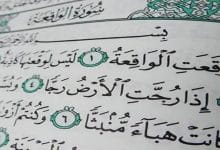 سُورَةُ الوَاقِعَةِ
بِسْمِ
قَعَتِ ٱلْوَاقِعَةُ ١ لَيْسَ لِوَقْعَتِهَا
إِذَا رُجَّتِ ٱلْأَرْضُ رَجًّا ٤ وَبُسَّتِ
انَتْ هَبَآءً مُّنۢبَثًّا ٦ وَكُنتُمْ أَزْوَ